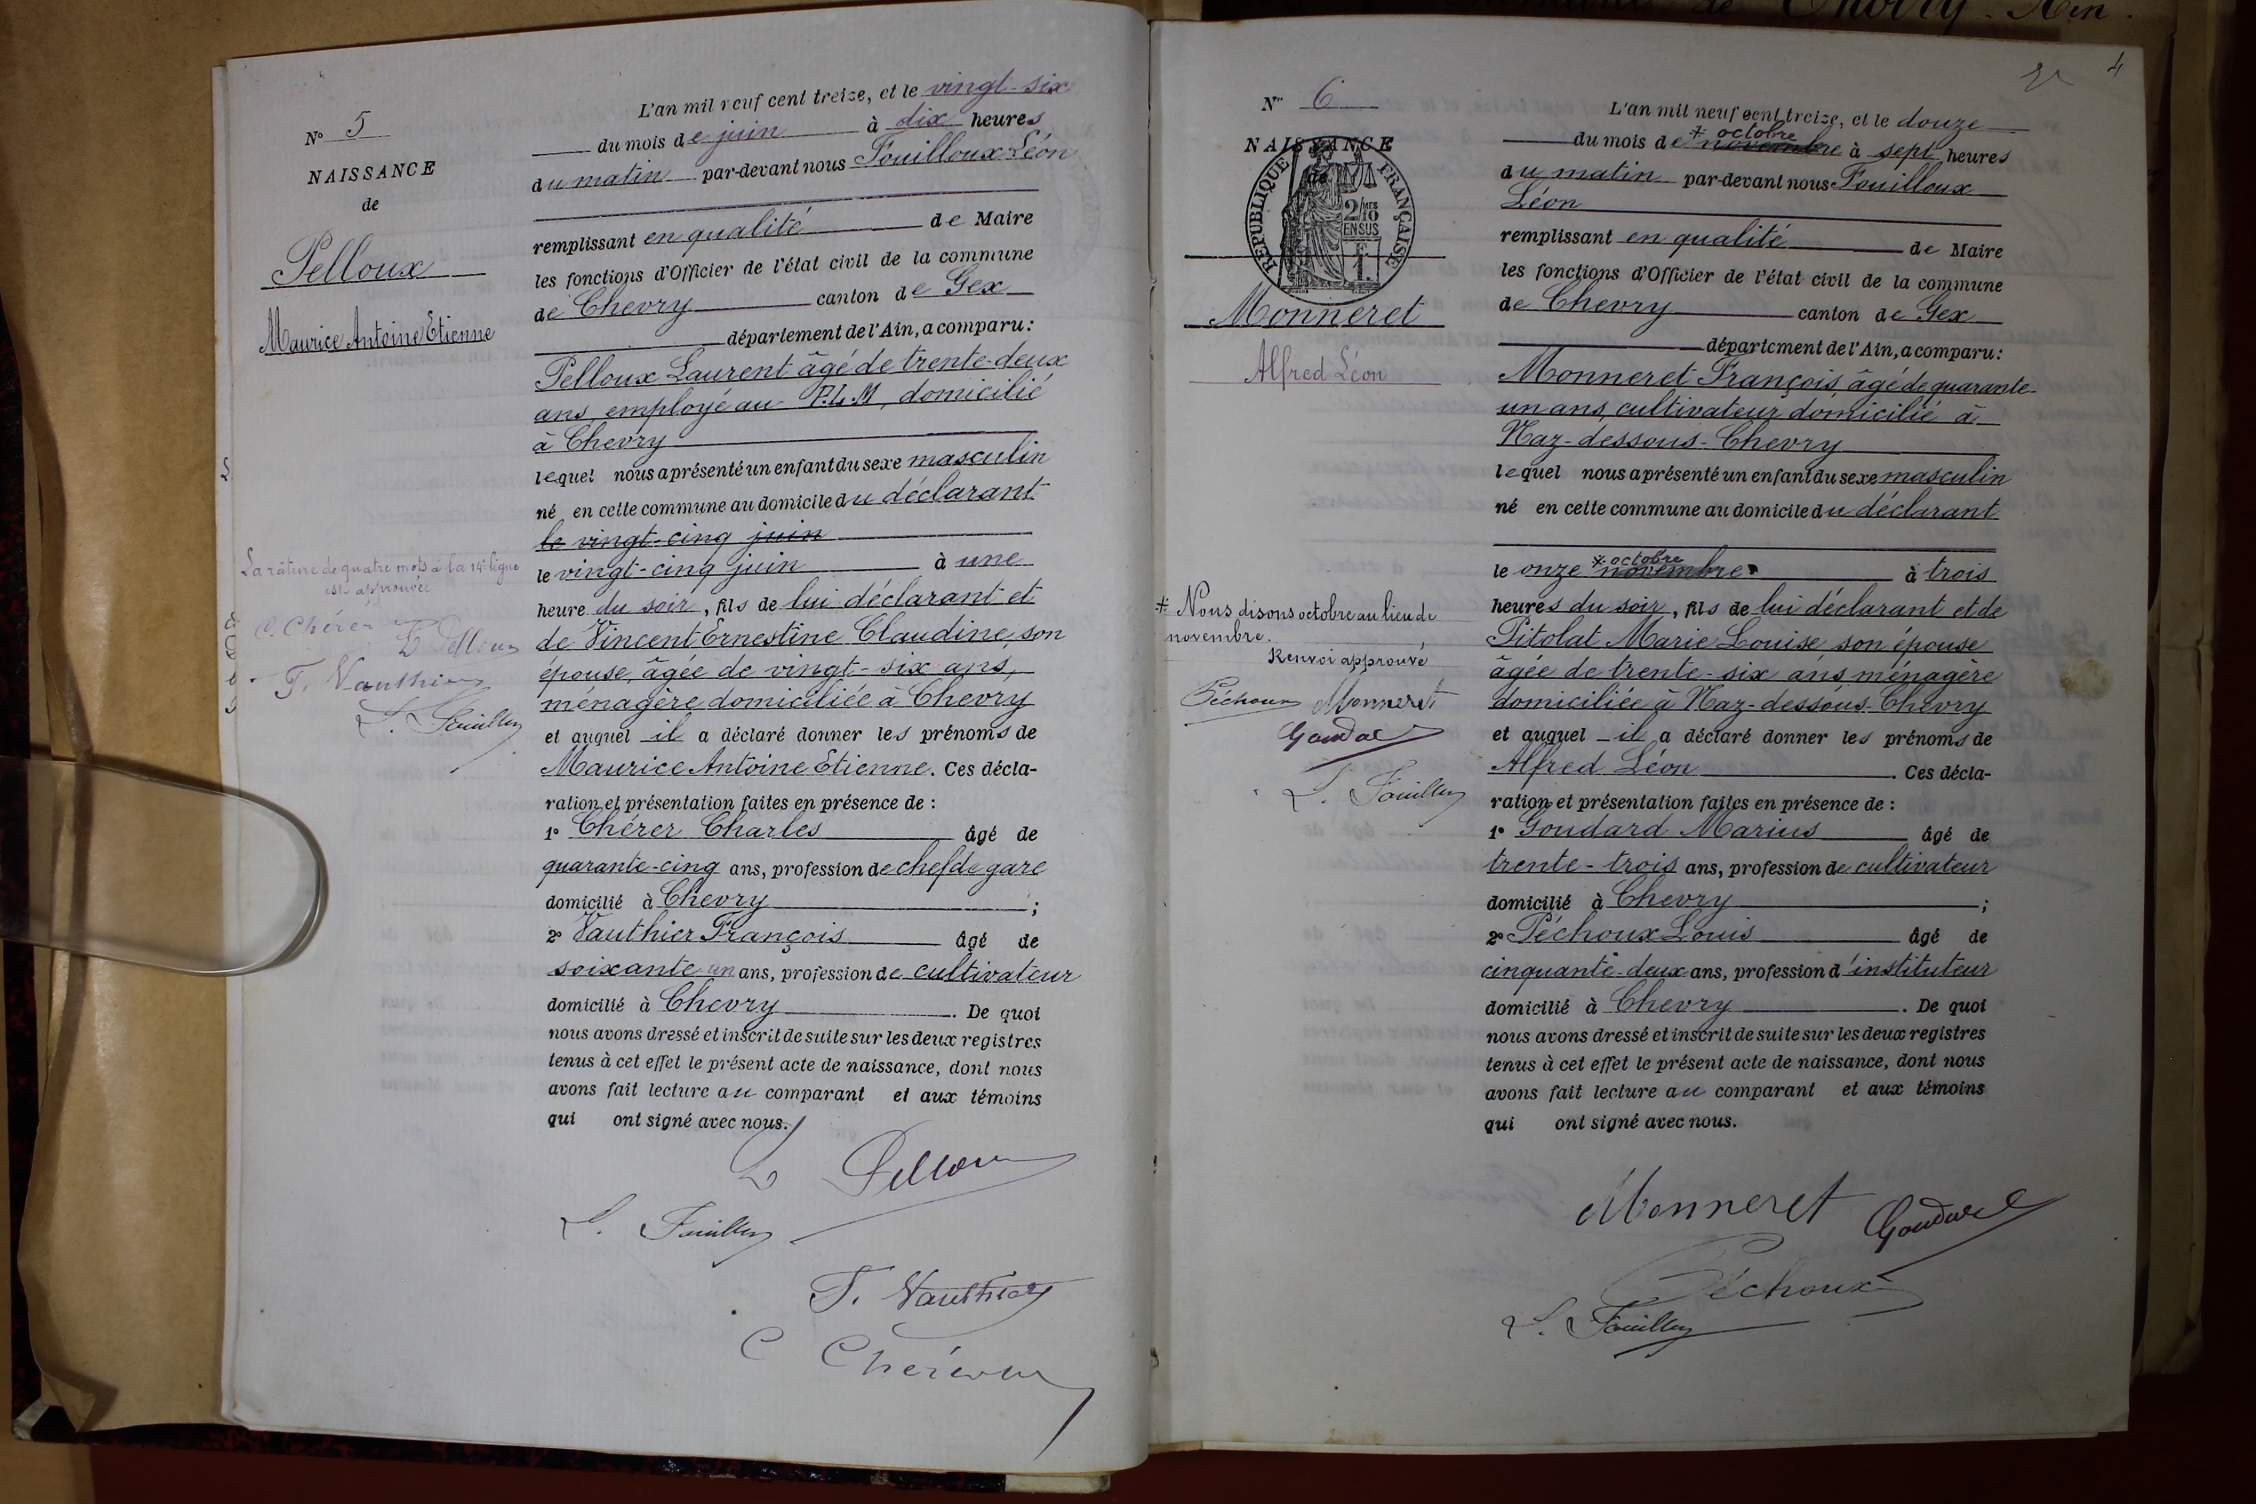 N° 5
NAISSANCE
de
Pelloux
Maurice Antoine Etienne
La râture de quatre mots à la 14e ligne
est approuvée
C. Chérer
L Pelloux
F. Vauthier
L. Fouilloux
L'an mil neuf cent treize, et le vingt-six
du mois de juin à dix heures
du matin par-devant nous Fouilloux Léon
remplissant en qualité de Maire
les fonctions d'Officier de l'état civil de la commune
de Chevry canton de Gex
département de l'Ain, a comparu:
Pelloux Laurent âgé de trente-deux
ans employé au P.L.M, domicilié
à Chevry
lequel nous a présenté un enfant du sexe masculin
né en cette commune au domicile du déclarant
le vingt-cinq juin
le vingt-cinq juin à une
heure du soir, fils de lui déclarant et
de Vincent Ernestine Claudine, son
épouse, âgée de vingt-six ans,
ménagère domiciliée à Chevry
et auquel il a déclaré donner les prénoms de
Maurice Antoine Etienne. Ces décla-
ration et présentation faites en présence de :
1° Chérer Charles âgé de
quarante-cinq ans, profession de chef de gare
domicilié à Chevry ;
2° Vauthier François âgé de
soixante un ans, profession de cultivateur
domicilié à Chevry. De quoi
nous avons dressé et inscrit de suite sur les deux registres
tenus à cet effet le présent acte de naissance, dont nous
avons fait lecture au comparant et aux témoins
qui ont signé avec nous.
L Pelloux
L. Fouilloux
F. Vauthier
C Chérer
4
N° 6
NAISSANCE
de
REPUBLIQUE FRANÇAISE
2/10 MES
EN SUS
F
1.
Monneret
Alfred Léon
* Nous disons octobre au lieu de
novembre.
Renvoi approuvé
Péchoux Monneret
Goudard
L. Fouilloux
L'an mil neuf cent treize, et le douze
du mois de * octobre novembre à sept heures
du matin par-devant nous Fouilloux
Léon
remplissant en qualité de Maire
les fonctions d'Officier de l'état civil de la commune
de Chevry canton de Gex
département de l'Ain, a comparu:
Monneret François, âgé de quarante-
un ans, cultivateur domicilié à
Naz-dessous-Chevry
lequel nous a présenté un enfant du sexe masculin
né en cette commune au domicile du déclarant
le onze * octobre novembre à trois
heures du soir, fils de lui déclarant et de
Pitolat Marie Louise, son épouse
âgée de trente-six ans, ménagère
domiciliée à Naz-dessous-Chevry
et auquel il a déclaré donner les prénoms de
Alfred Léon. Ces décla-
ration et présentation faites en présence de :
1° Goudard Marius âgé de
trente-trois ans, profession de cultivateur
domicilié à Chevry ;
2° Péchoux Louis âgé de
cinquante-deux ans, profession d'instituteur
domicilié à Chevry. De quoi
nous avons dressé et inscrit de suite sur les deux registres
tenus à cet effet le présent acte de naissance, dont nous
avons fait lecture au comparant et aux témoins
qui ont signé avec nous.
Monneret
Goudard
Péchoux
L. Fouilloux